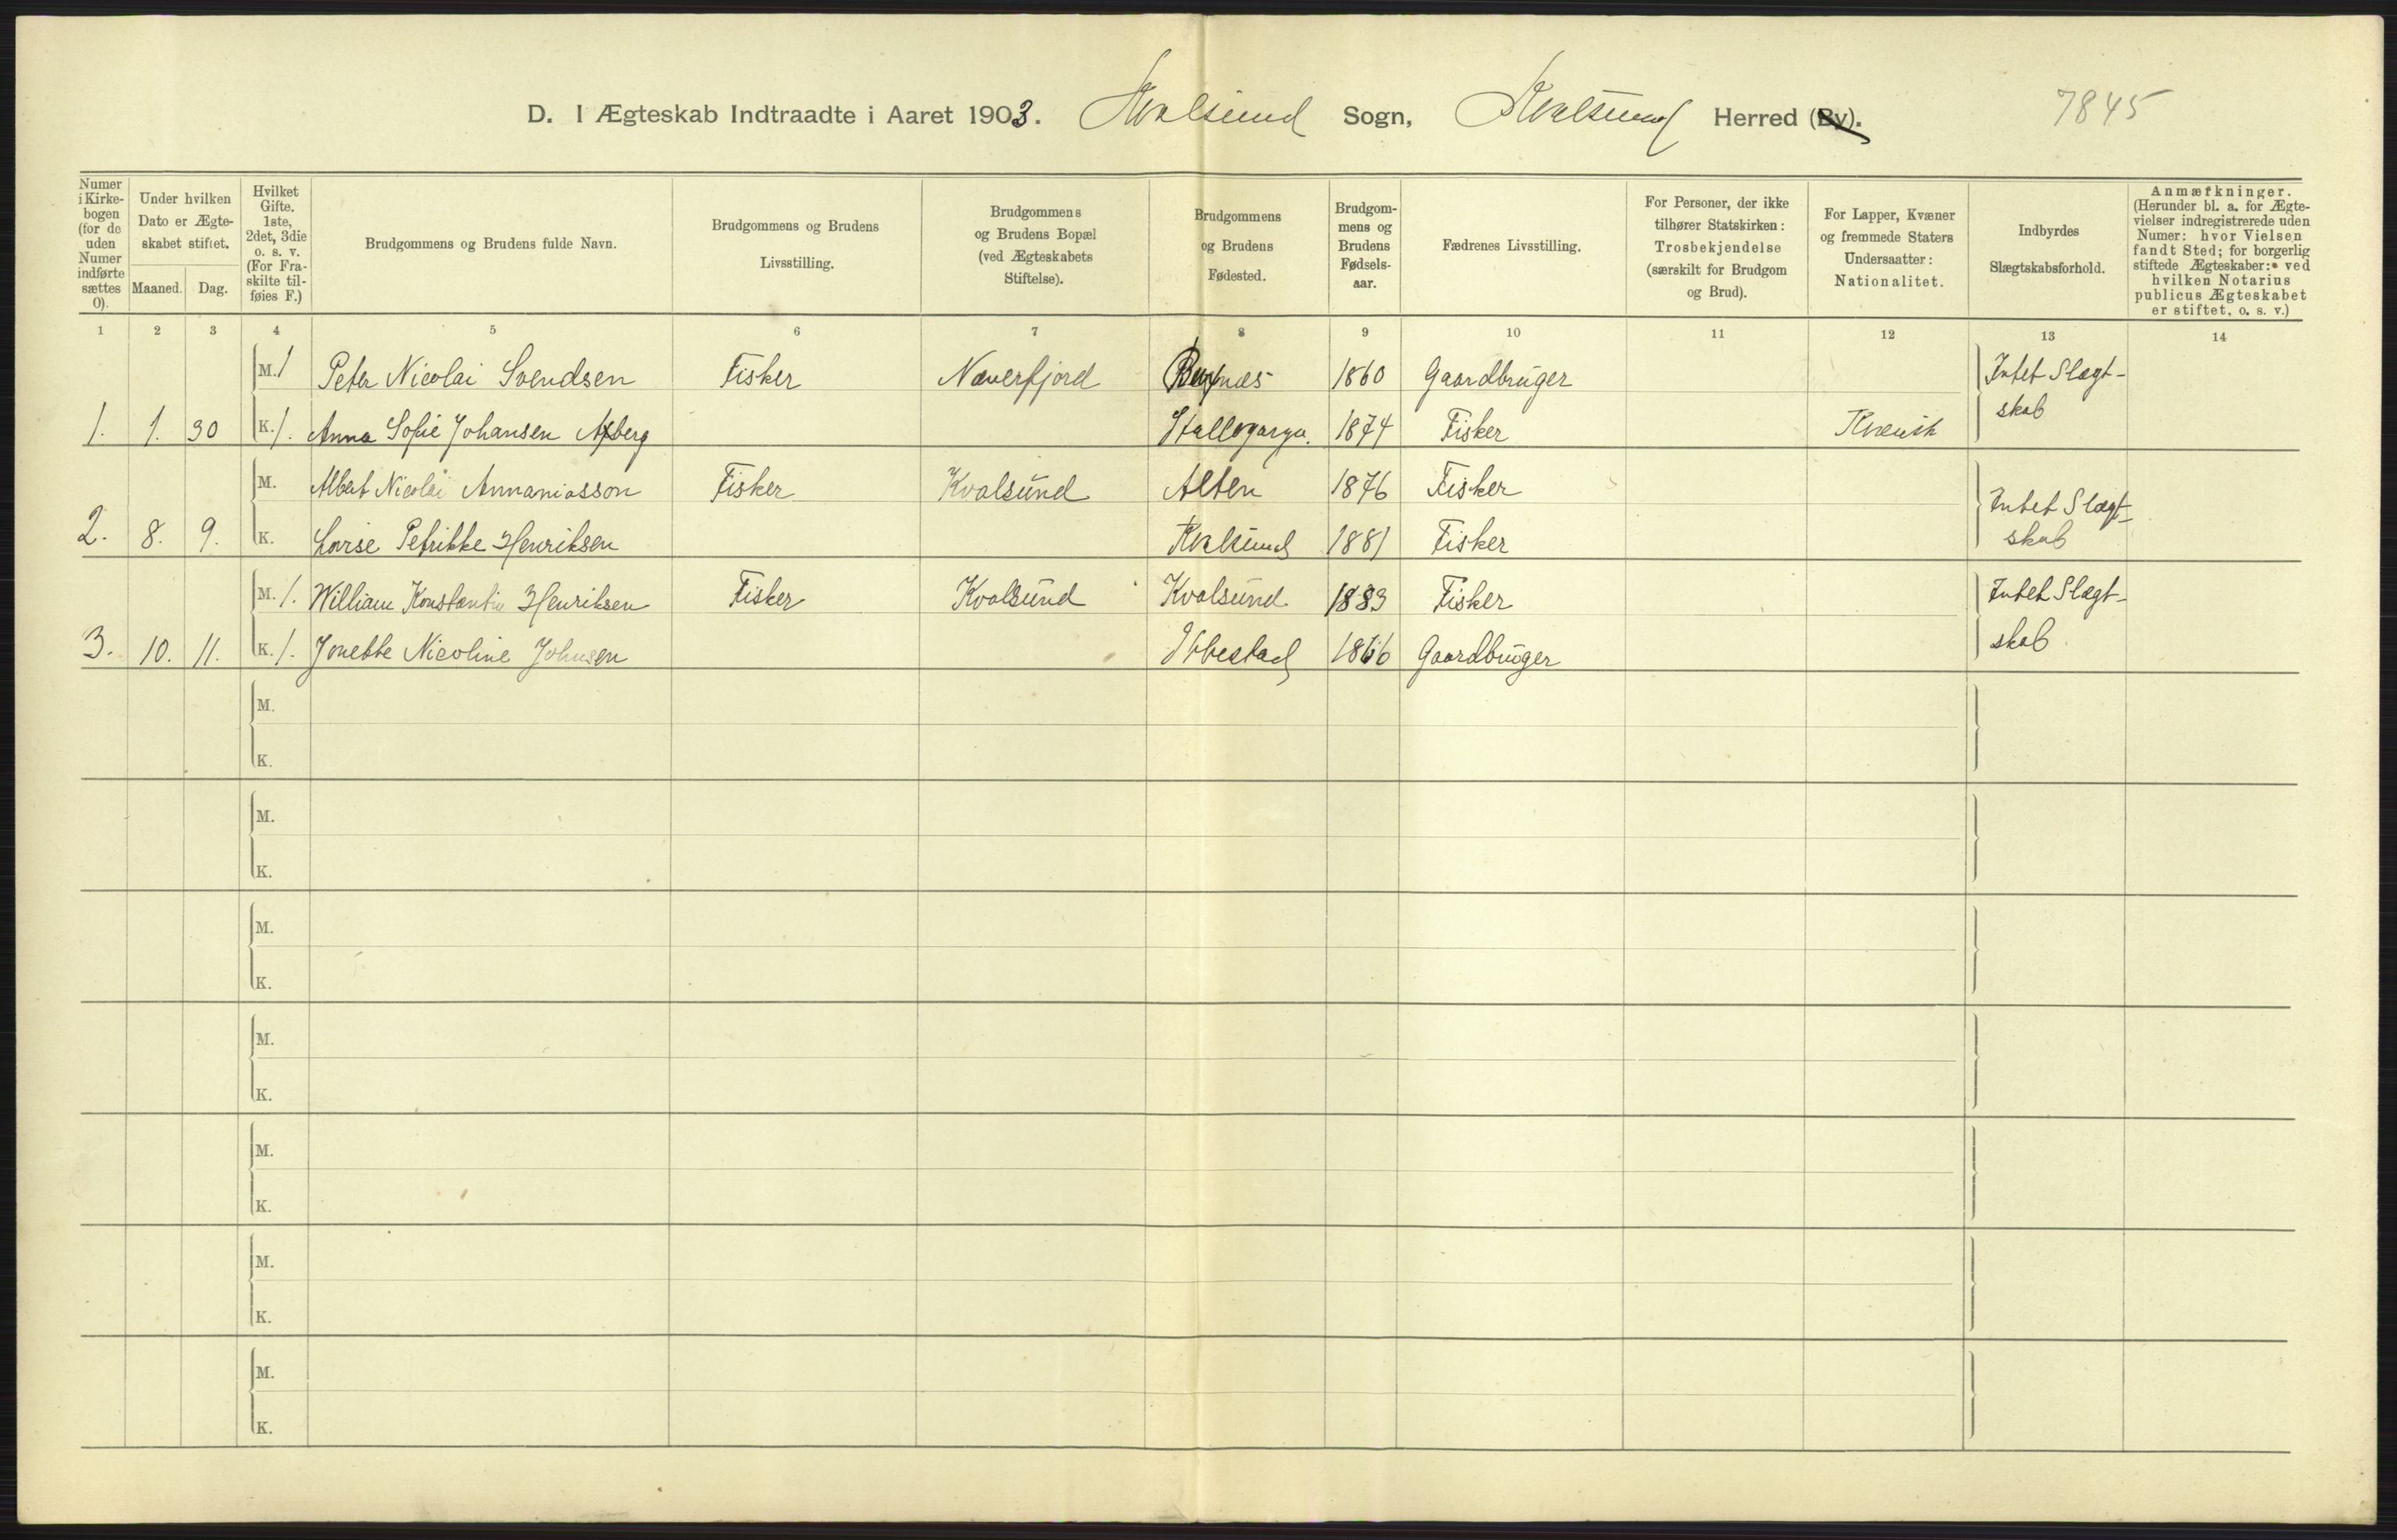 D. I Ægteskab Indtraadte i Aaret 1903. Kvalsund Sogn, Kvalsund Herred (By). 7845
Numer i Kirkebogen (for de uden Numer indførte sættes 0).
Under hvilken Dato er Ægteskabet stiftet.
Maaned. Dag.
Hvilket Gifte. 1ste, 2det, 3die o. s. v. (For Fraskilte tilføies F.)
Brudgommens og Brudens fulde Navn.
Brudgommens og Brudens Livsstilling.
Brudgommens og Brudens Bopæl (ved Ægteskabets Stiftelse).
Brudgommens og Brudens Fødested.
Brudgommens og Brudens Fødselsaar.
Fædrenes Livsstilling.
For Personer, der ikke tilhører Statskirken: Trosbekjendelse (særskilt for Brudgom og Brud).
For Lapper, Kvæner og fremmede Staters Undersaatter: Nationalitet.
Indbyrdes Slægtskabsforhold.
Anmærkninger. (Herunder bl. a. for Ægtevielser indregistrerede uden Numer: hvor Vielsen fandt Sted; for borgerlig stiftede Ægteskaber: ved hvilken Notarius publicus Ægteskabet er stiftet, o. s. v.)
1 2 3 4 5 6 7 8 9 10 11 12 13 14
M. 1 Peter Nicolai Svendsen Fisker Næverfjord 1860 Gaardbruger Intet Slægt-
1. 1. 30 K. 1. Anna Sofie Johansen Stallogargo. 1874 Fisker Kvænsk skab
M. Albert Nicolai Annaniasson Fisker Kvalsund Alten 1876 Fisker Intet Slægt-
2. 8. 9. K. Lovise Petrikke Henriksen Kvalsund 1881 Fisker skab
M. 1. William Konstantin Henriksen Fisker Kvalsund Kvalsund 1883 Fisker Intet Slægt-
3. 10. 11. K. 1. Jonette Nicoline Johnsen Ibbestad 1866 Gaardbruger skab
M.
K.
M.
K.
M.
K.
M.
K.
M.
K.
M.
K.
M.
K.